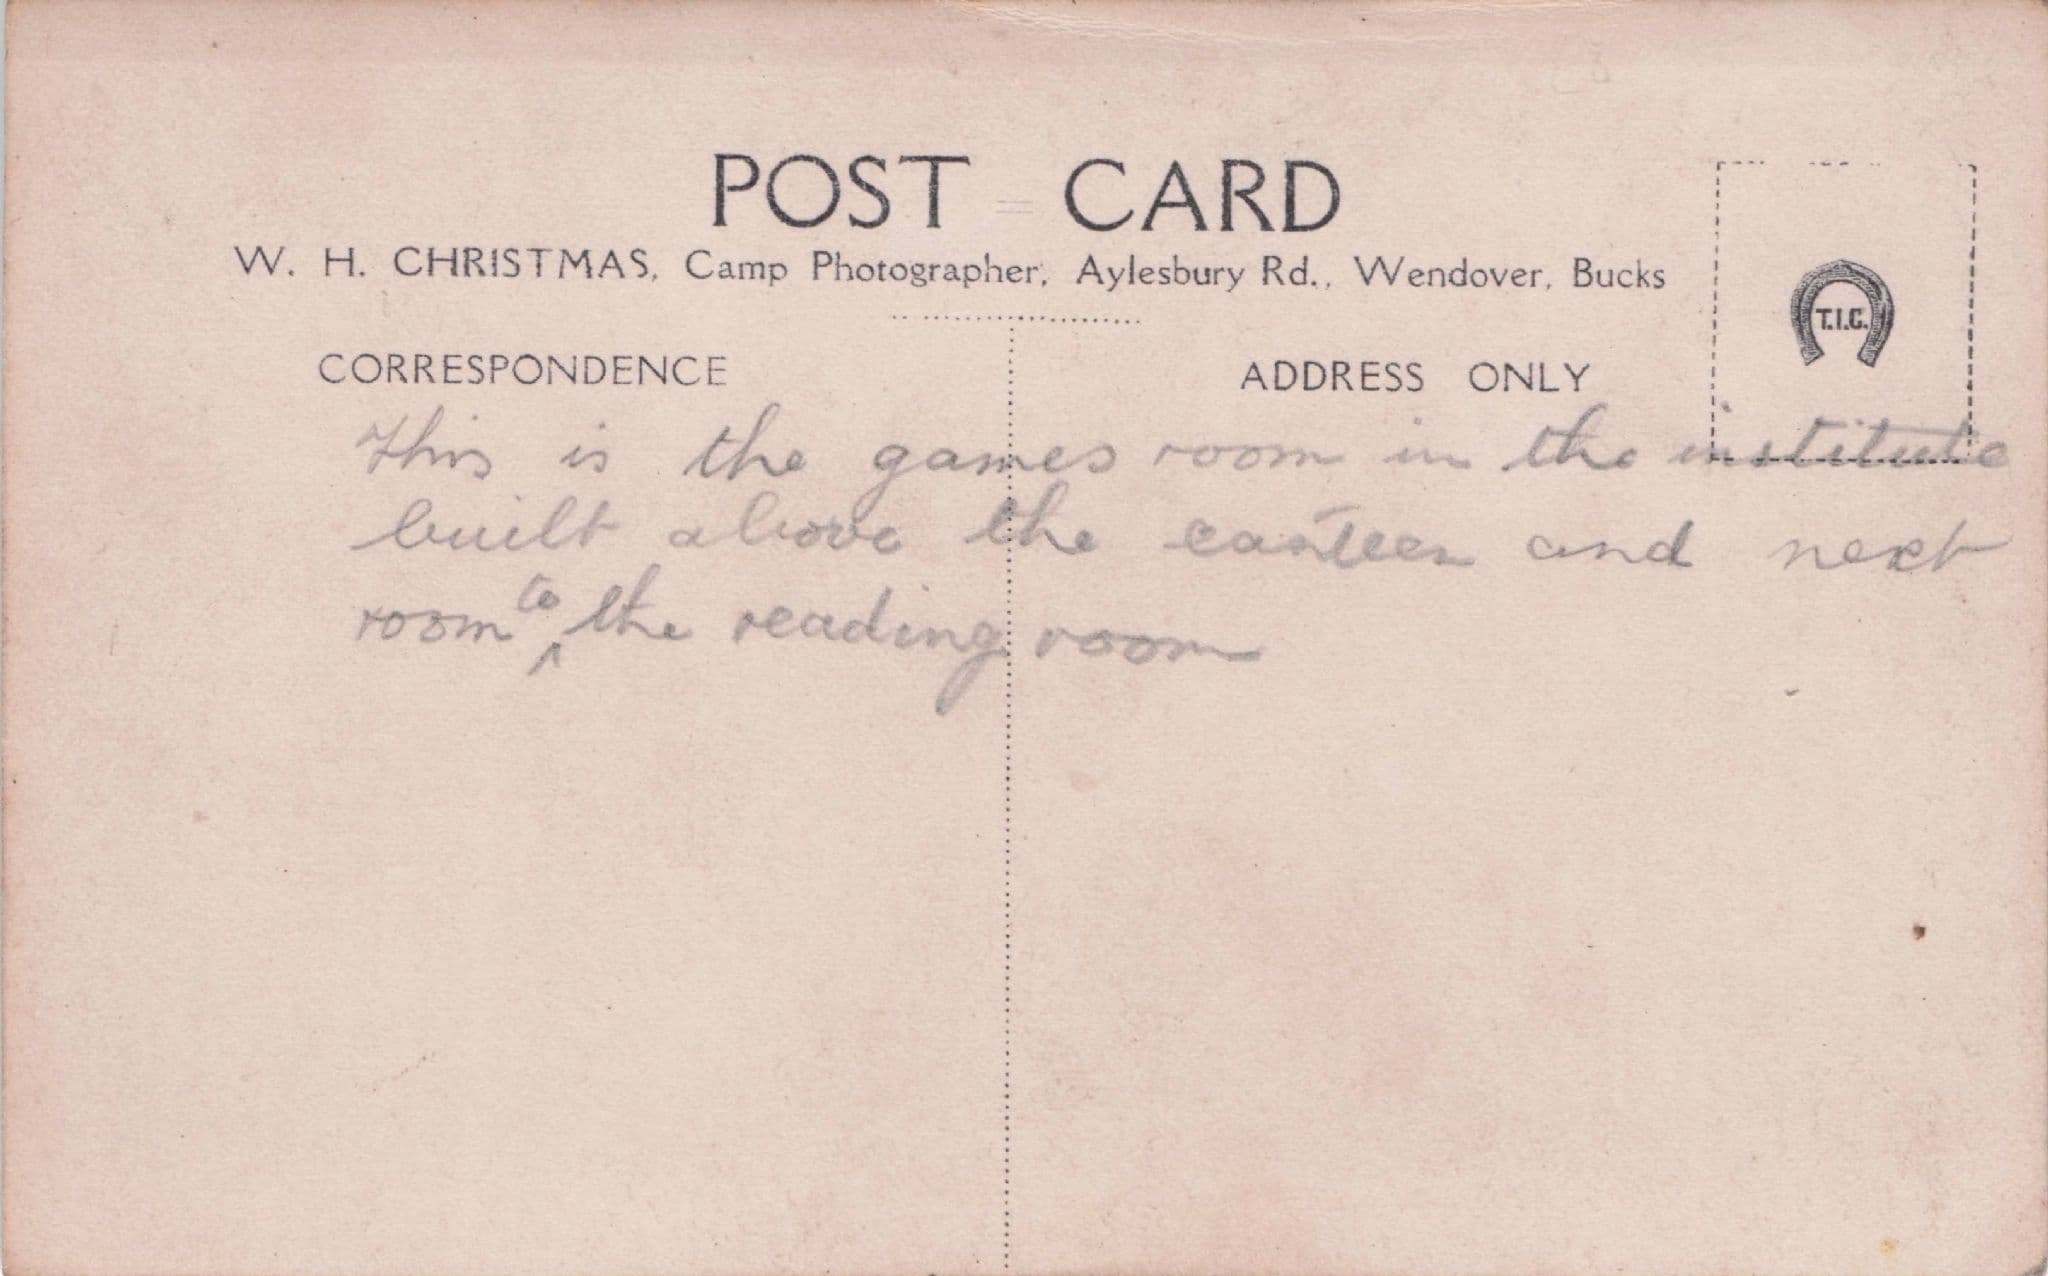 POST CARD
W. H. CHRISTMAS, Camp Photographer, Aylesbury Rd., Wendover, Bucks
CORRESPONDENCE
ADDRESS ONLY
T.I.C.
This is the games room in the institute
built above the canteen and next
room to the reading room